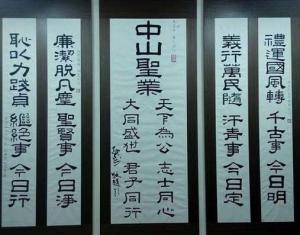 禮運國風轉 千古事 今日明
義行萬民隨 汗青事 今日定
中山聖業
天下為公 志士同心
大同盛世 君子同行
廉潔脫凡塵 聖賢事 今日淨
恥以力踐身 繼絕事 今日行